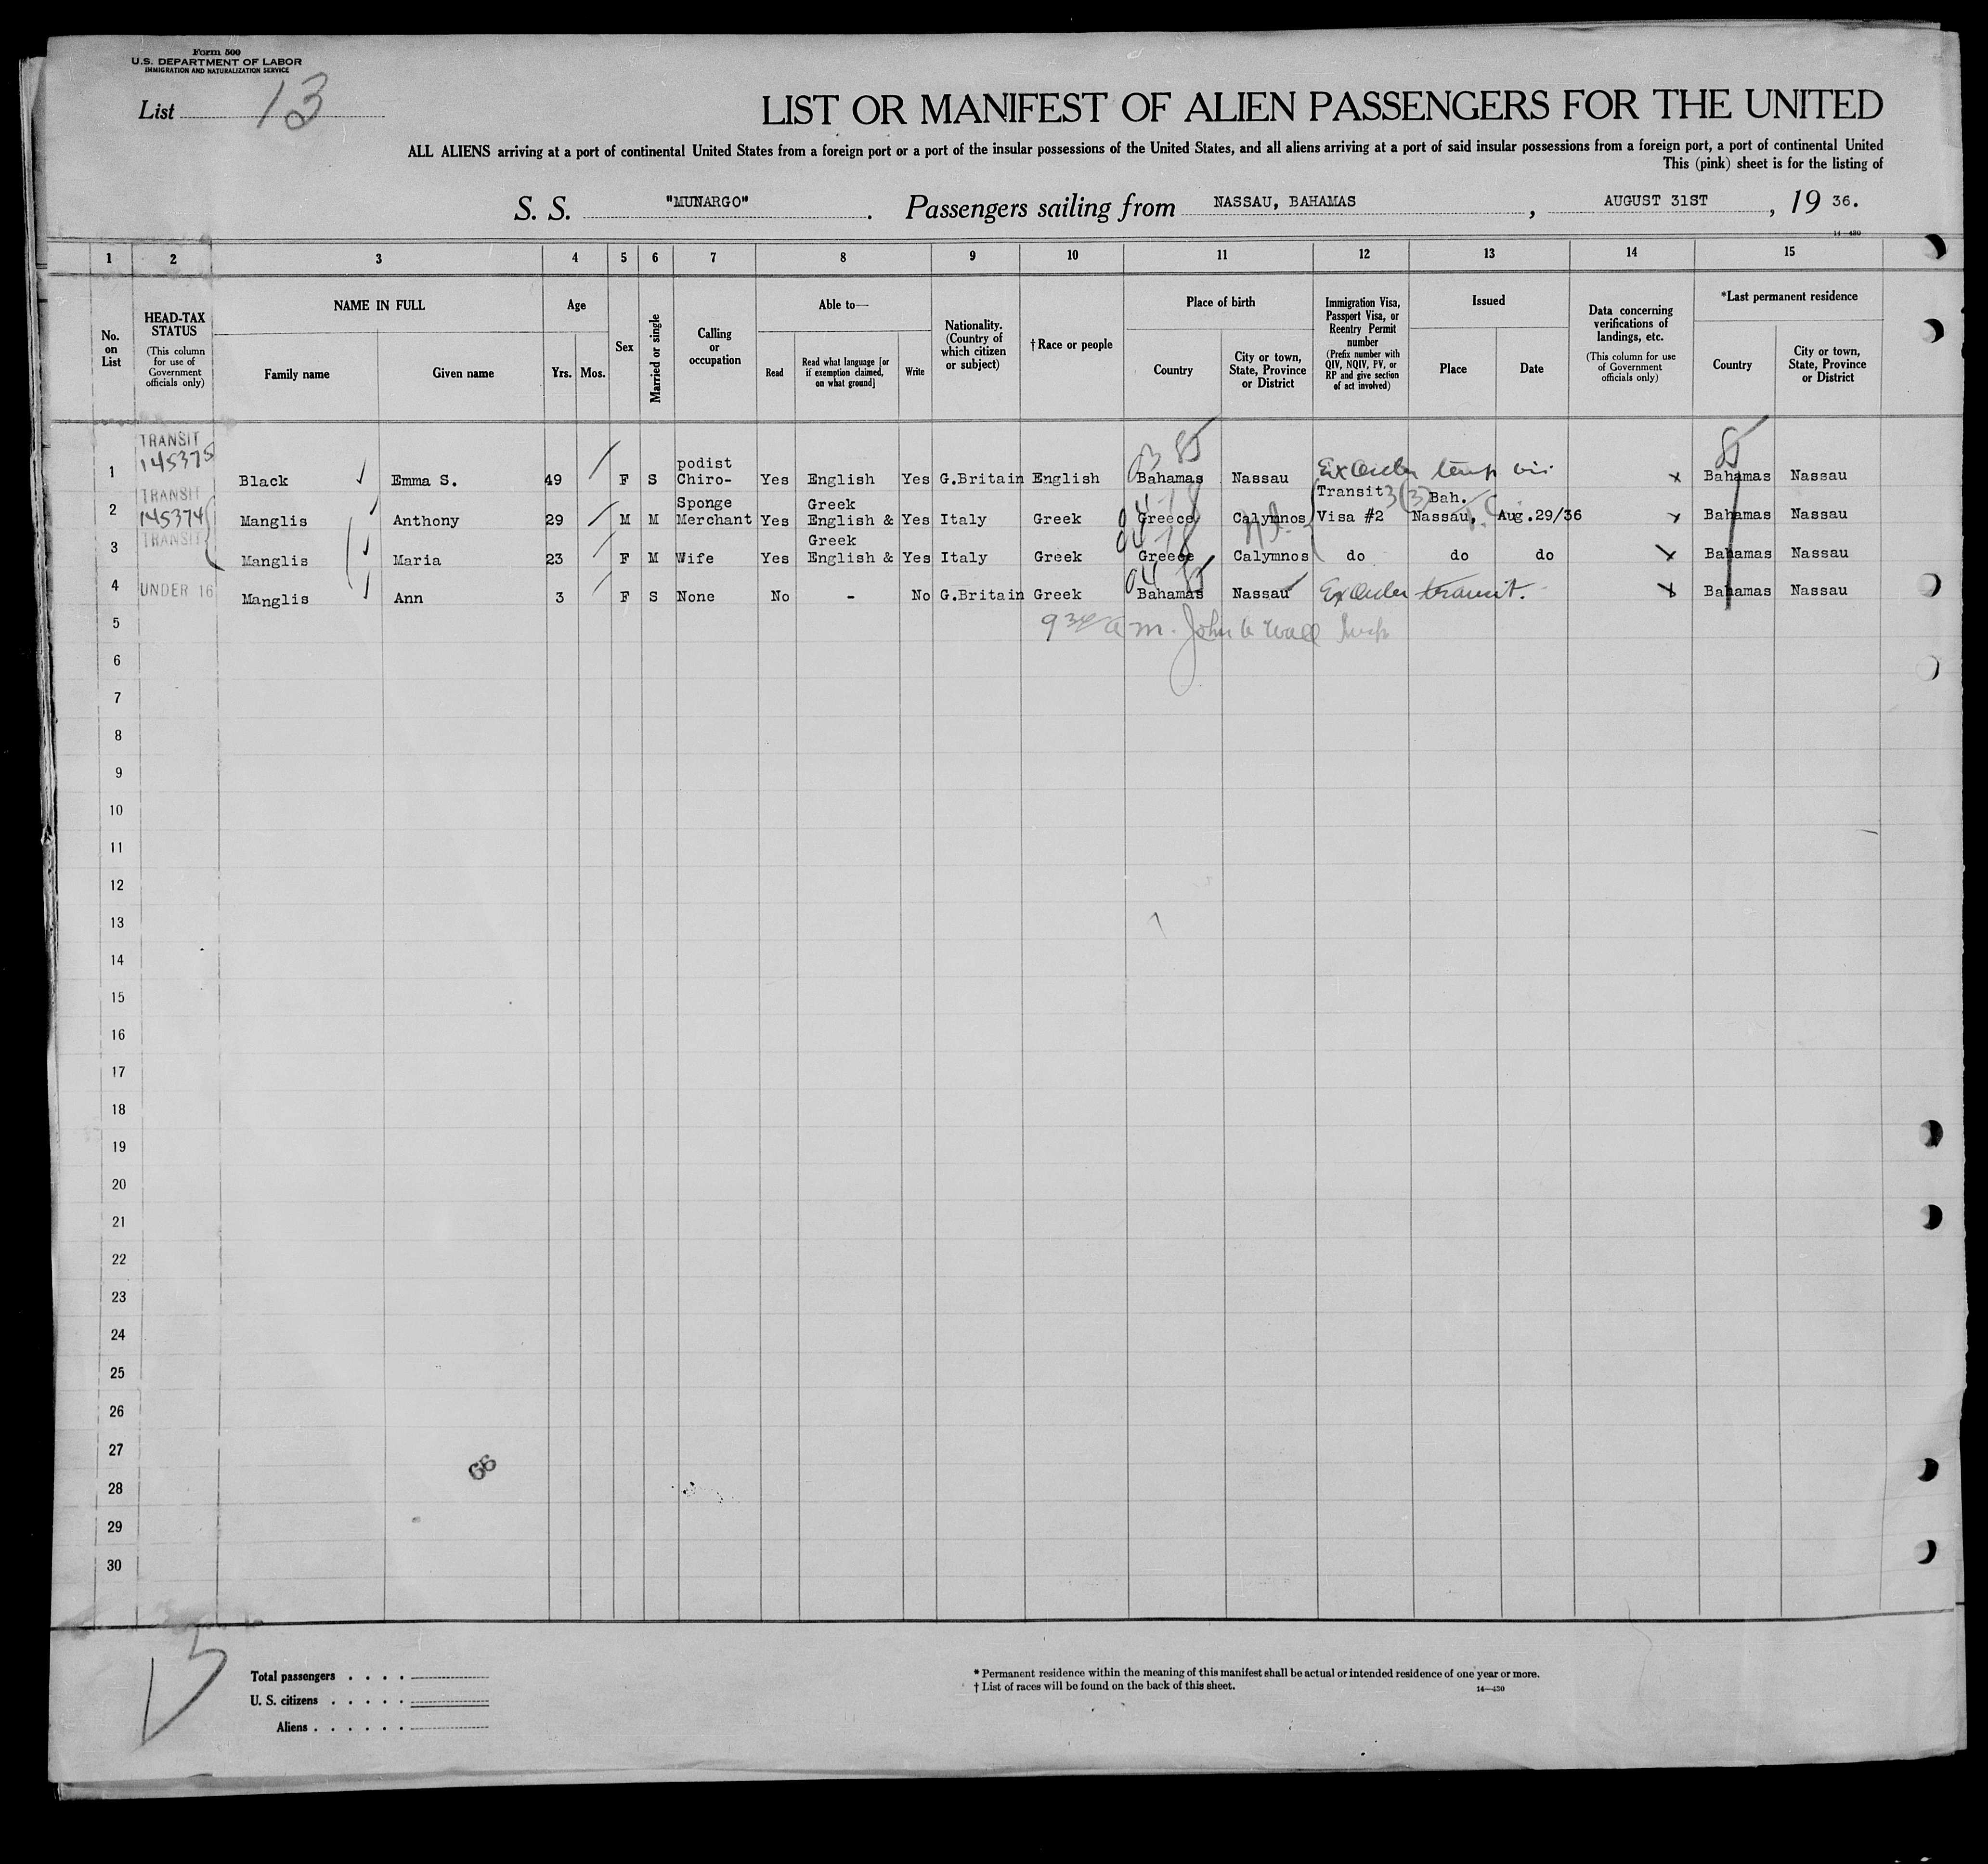 Form 500
U.S. DEPARTMENT OF LABOR
IMMIGRATION AND NATURALIZATION SERVICE
List 13
LIST OR MANIFEST OF ALIEN PASSENGERS FOR THE UNITED
ALL ALIENS arriving at a port of continental United States from a foreign port or a port of the insular possessions of the United States, and all aliens arriving at a port of said insular possessions from a foreign port, a port of continental United
This (pink) sheet is for the listing of
S. S. "MUNARGO". Passengers sailing from NASSAU, BAHAMAS, AUGUST 31ST, 19 36.
14—430
1 2 3 4 5 6 7 8 9 10 11 12 13 14 15
No. on List
HEAD-TAX STATUS
(This column for use of Government officials only)
NAME IN FULL
Family name Given name
Age
Yrs. Mos.
Sex
Married or single
Calling or occupation
Able to—
Read
Read what language [or if exemption claimed, on what ground]
Write
Nationality. (Country of which citizen or subject)
† Race or people
Place of birth
Country
City or town, State, Province or District
Immigration Visa, Passport Visa, or Reentry Permit number
(Prefix number with QIV, NQIV, PV, or RP and give section of act involved)
Issued
Place Date
Data concerning verifications of landings, etc.
(This column for use of Government officials only)
*Last permanent residence
Country
City or town, State, Province or District
TRANSIT
145375
03 85
85
podist
1 Black Emma S. 49 F S Chiro- Yes English Yes G.Britain English Bahamas Nassau Ex Order temp vis x Bahamas Nassau
TRANSIT
145374
Sponge Greek 04-78 Transit 3(3) Bah.
2 Manglis Anthony 29 M M Merchant Yes English & Yes Italy Greek Greece Calymnos Visa #2 Nassau, Aug.29/36 x Bahamas Nassau
TRANSIT
Greek 04-78
3 Manglis Maria 23 F M Wife Yes English & Yes Italy Greek Greece Calymnos do do do x Bahamas Nassau
04 85
4 UNDER 16 Manglis Ann 3 F S None No - No G.Britain Greek Bahamas Nassau Ex Order transit. x Bahamas Nassau
5 9 30 a m. John Wall Insp
6
7
8
9
10
11
12
13
14
15
16
17
18
19
20
21
22
23
24
25
26
27
66
28
29
30
Total passengers . . . .
U. S. citizens . . . . .
Aliens . . . . . .
* Permanent residence within the meaning of this manifest shall be actual or intended residence of one year or more.
† List of races will be found on the back of this sheet.
14—430